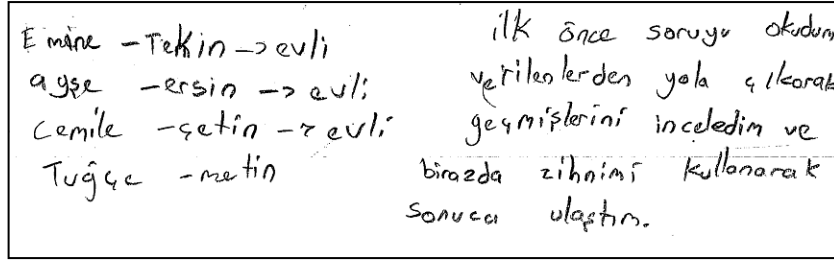 Emine - Tekin -> evli
ayşe - ersin -> evli
Cemile - çetin -> evli
Tuğçe - metin
ilk önce soruyu okudum
verilenlerden yola çıkarak
geçmişlerini inceledim ve
birazda zihnimi kullanarak
sonuca ulaştım.